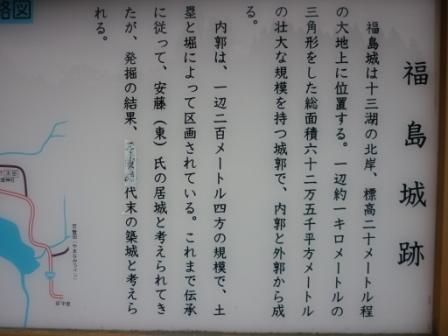 福島城跡
福島城は十三湖の北岸、標高二十メートル程
の大地上に位置する。一辺約一キロメートルの
三角形をした総面積六十二万五千平方メートル
の壮大な規模を持つ城郭で、内郭と外郭から成
る。
内郭は、一辺二百メートル四方の規模で、土
塁と堀によって区画されている。これまで伝承
に従って、安藤（東）氏の居城と考えられてき
たが、発掘の結果、代末の築城と考えら
れる。
略図